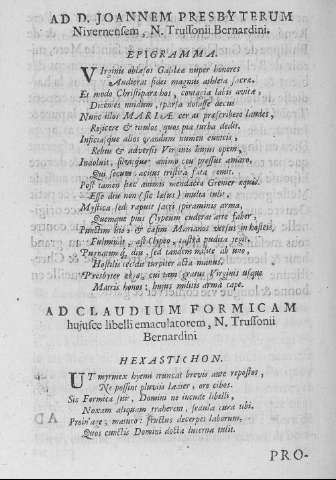 AD D. JOANNEM PRESBYTERUM
Nivernensem, N. Trussonii Bernardini.
EPIGRAMMA.
Virginis oblæsos Galilea nuper honores
Audierat fidei magnus athleta sacræ.
Et modo Christiparæ hos, contagia labis avitæ,
Dicentes nuidum, parta nocasse decus
Nunc illos MARIÆ veras præscribere laudes,
Rejicere & tumlos quos pia turba dedit.
Inficiasque alios grandium numen eunteis,
Rebus & adversis Virginis hujus opem,
Indoluit, sicque animo ceu pressus amaro,
Qui secum, acius tristia fata gemit.
Post tamen hæc animis mendacia Grenier æquis.
Esse diu non (sic læsus) multa tulit,
Mystica sed rapuit sacri spiramina arma,
Quemque pius Clypeum cuderat arte faber,
Punctim bis, & cæsim Marianos versus in hosteis,
Fulminat, ast Clypo, justa pudica tegit.
Purnatum q. diu, sed tandem nactus ab uno,
Hostili victis turpiter acta manus.
Presbyter ergo, cui tam gratus Virginis usque
Matris honos: hujus militis arma cape.
AD CLAUDIUM FORMICAM
hujusce libelli emaculatorem, N. Trussonii
Bernardini
HEXASTICHON.
UT myrmex hyemi truncat brevia ante repostos,
Ne possint pluviis lædier, ore cibos.
Sic Formica fuit, Domini ne incude libelli,
Noxam aliquam traherent, sedula cura tibi.
Proin'age; maturo: fructus decerpes laborum.
Quos cunctis Domini docta lucerna tulit.
PRO-